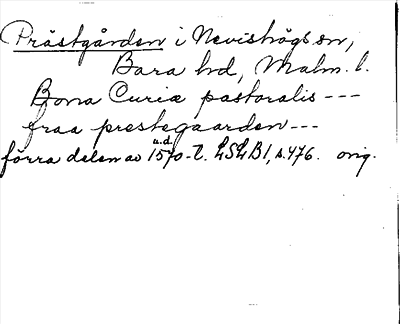 Prästgården i Nevishögs sn,
Bara hd, Malm. l.
Bona Curiæ pastoralis ---
fraa prestegaarden ---
u.d.
förra delen av 1570-t. LSLB1, s.476. orig.